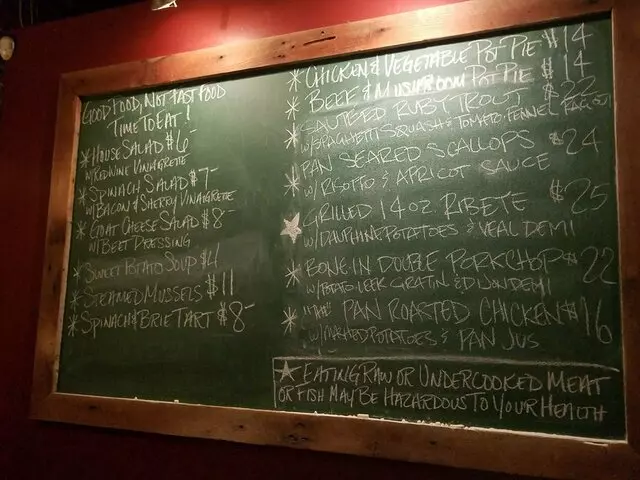 Good Food, Not Fast Food
Time To Eat!
* House Salad $6-
w/ Red Wine Vinaigrette
* Spinach Salad $7-
w/ Bacon & Sherry Vinaigrette
* Goat Cheese Salad $8-
w/ Beet Dressing
* Sweet Potato Soup $4
* Steamed Mussels $11
* Spinach & Brie Tart $8-
* Chicken & Vegetable Pot Pie $14
* Beef & Mushroom Pot Pie $14
* Sauteed Ruby Trout $22
w/ Spaghetti Squash & Tomato, Fennel Ragout
* Pan Seared Scallops $24
w/ Risotto & Apricot Sauce
★ Grilled 14oz. Ribete $25
w/ Dauphine Potatoes & Veal Demi
* Bone In Double Porkchop $22
w/ Potato Leek Gratin & Dijon Demi
* "The" Pan Roasted Chicken $16
w/ Mashed Potatoes & Pan Jus
★ Eating Raw or Undercooked Meat
or Fish May Be Hazardous To Your Health